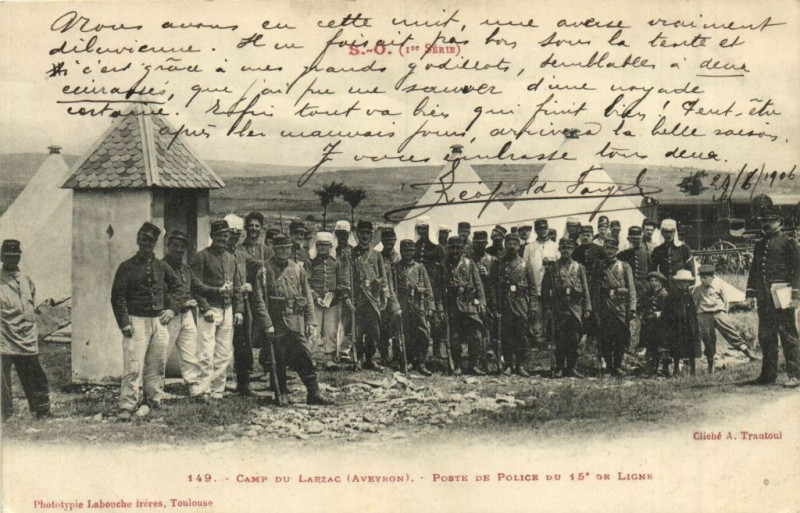 Nous avons eu cette nuit, une averse vraiment
diluvienne. Il ne faisait pas bon sous la tente et
S.-O. (1re Série)
si c'est grâce à mes grands godillots, semblables à deux
cuirassés, que j'ai pu me sauver d'une noyade
certaine. Enfin tout va bien qui finit bien! Peut-être
après les mauvais jours, arrivera la belle saison.
Je vous embrasse tous deux.
Léopold
24/6/1906
Cliché A. Trantoul
149. - CAMP DU LARZAC (AVEYRON). - POSTE DE POLICE DU 15e DE LIGNE
Phototypie Labouche frères, Toulouse